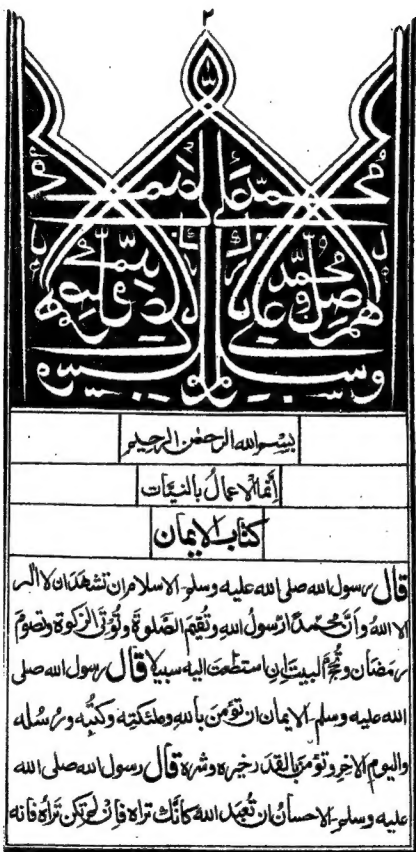 ٢
بسم الله الرحمن الرحيم
إنما الاعمال بالنيات
كتاب الايمان
قال رسول الله صلى الله عليه وسلم الاسلام ان تشهد ان لا اله
الا الله وأن محمدا رسول الله وتقيم الصلوة وتؤتى الزكوة وتصوم
رمضان وتحج البيت إن استطعت اليه سبيلا قال رسول الله صلى
الله عليه وسلم الايمان ان تؤمن بالله وملئكته وكتبه ورسله
واليوم الاخر وتؤمن بالقدر خيره وشره قال رسول الله صلى الله
عليه وسلم الاحسان ان تعبد الله كأنك تراه فإن لم تكن تراه فانه